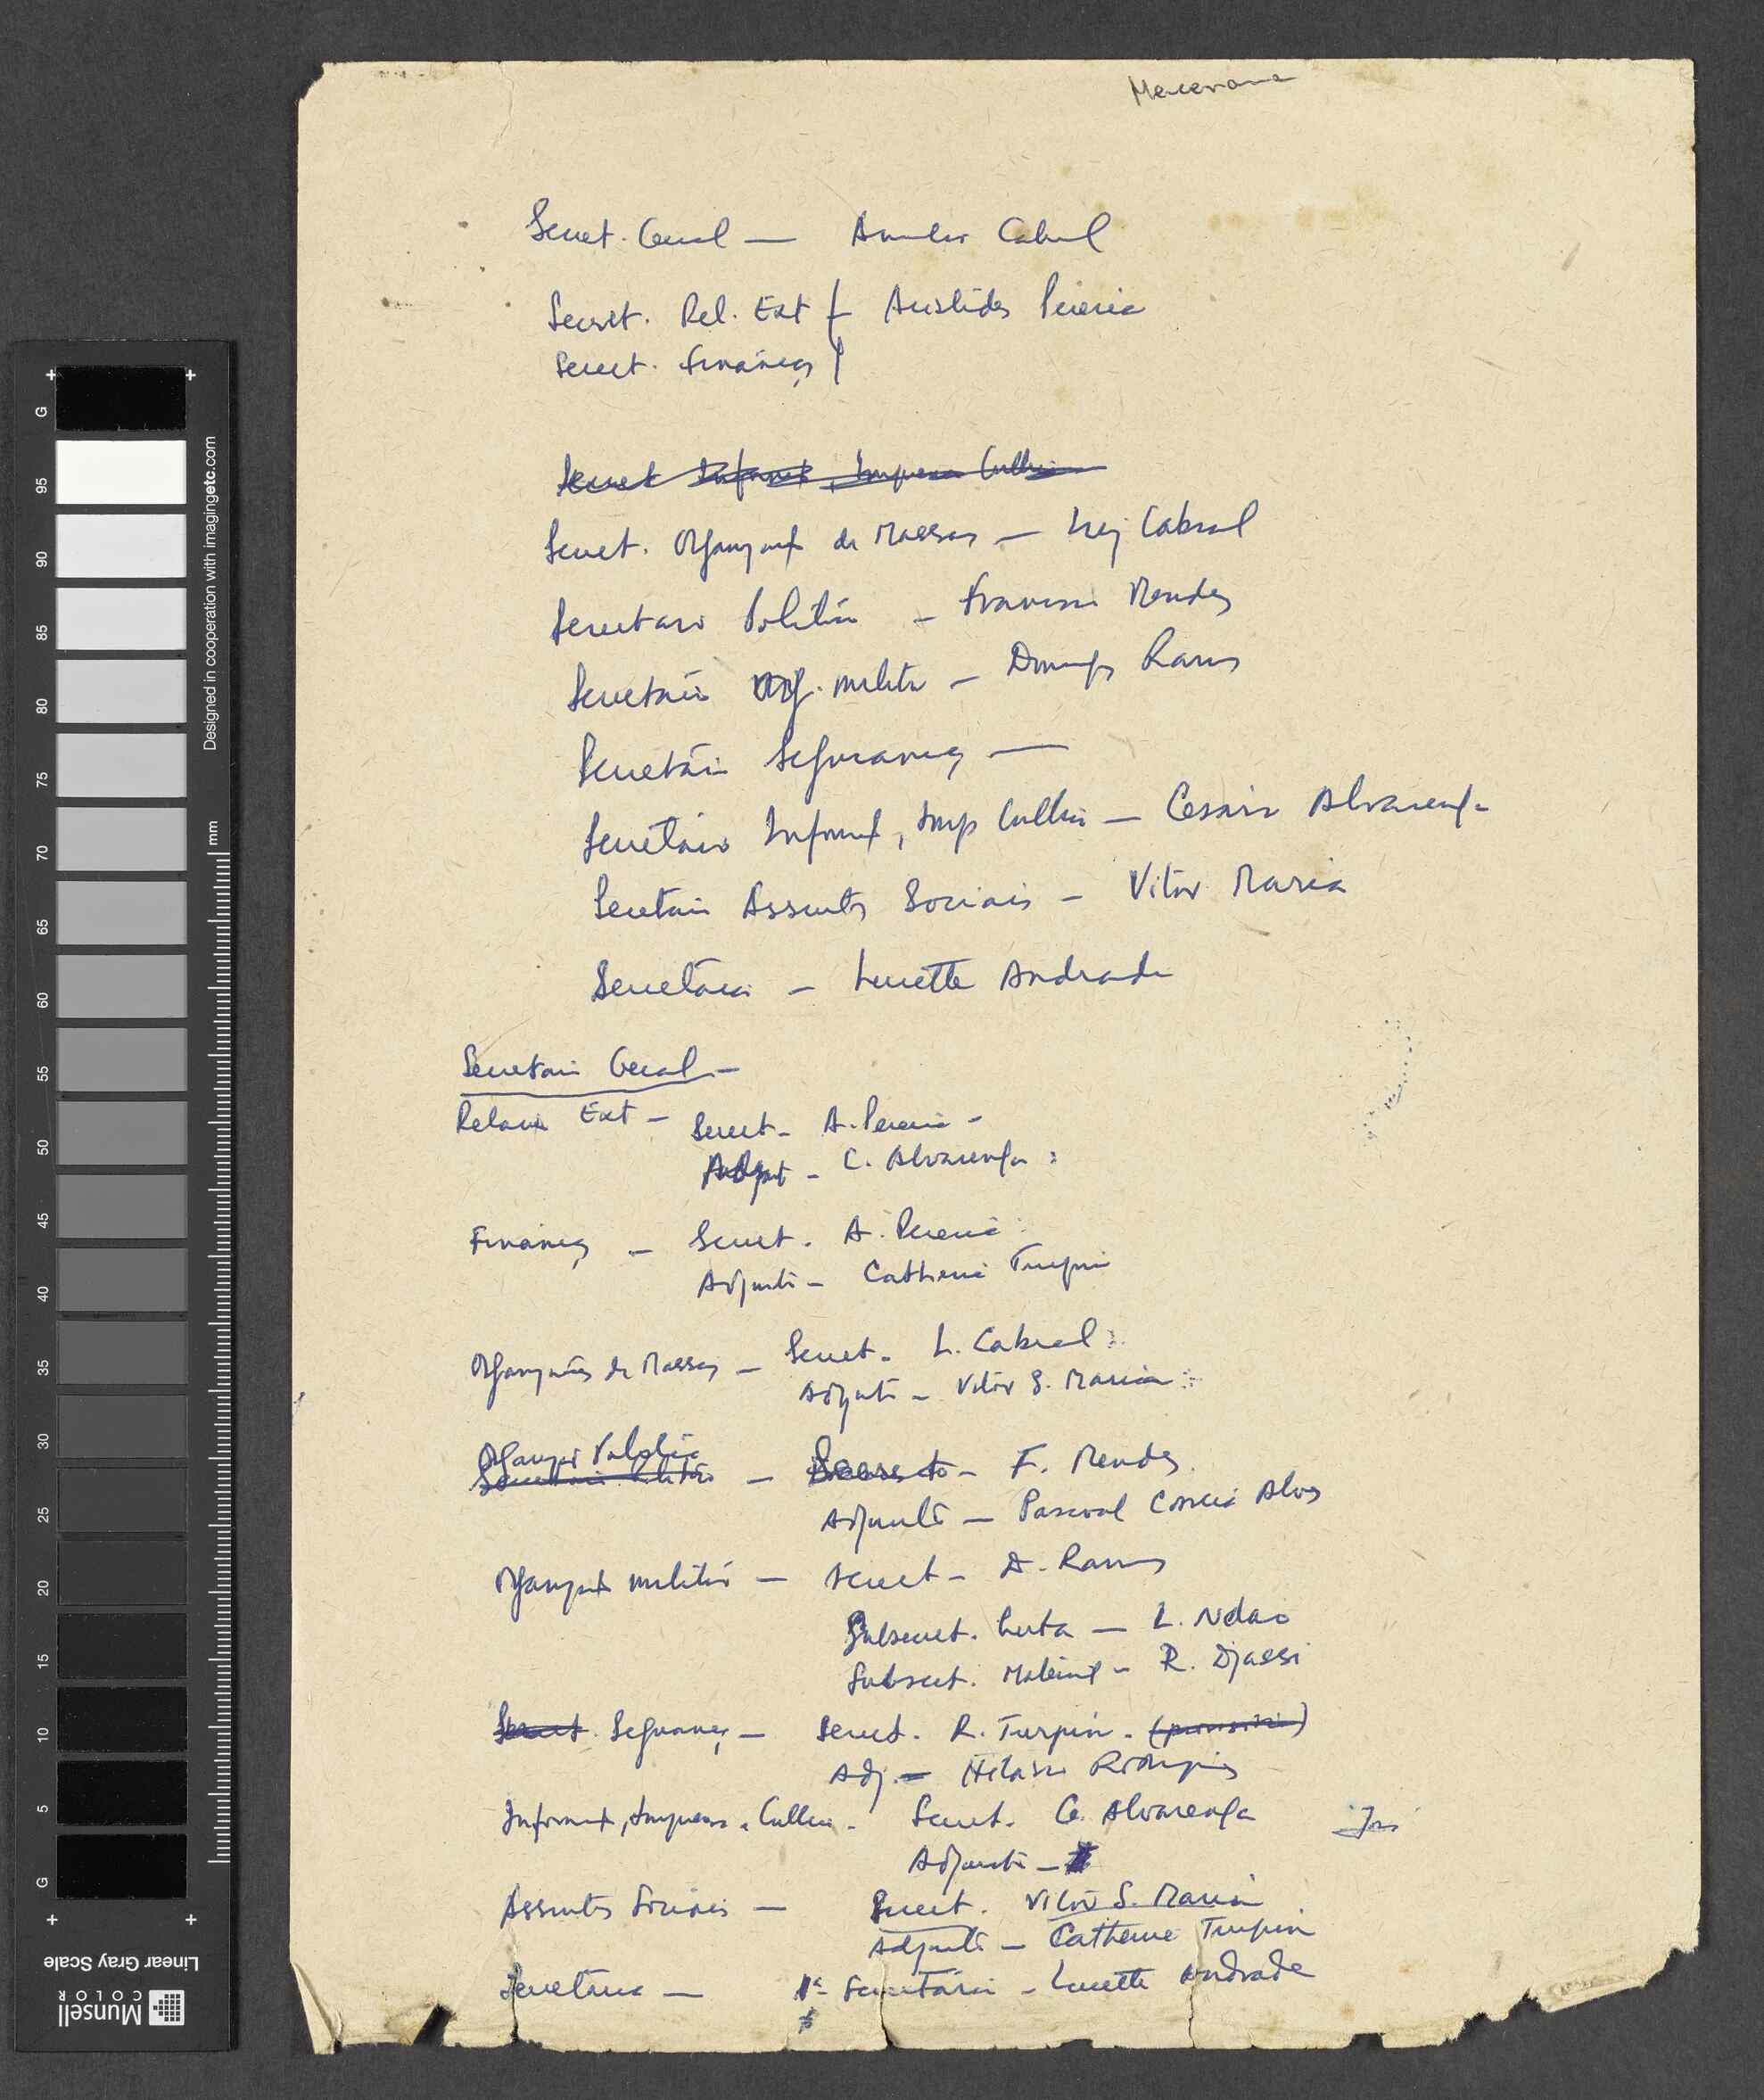 Secret. Geral — Amilcar Cabral
Secret. Rel. Ext — Aristides Pereira
Secret. Finanças
Secret Informç, Imprensa Cultura
Secret. Organizaç de Massas — Luiz Cabral
Secretario Politico — Francisco Mendes
Secretário Org. militar — Domingos Ramos
Secretário Segurança —
Secretário Informç, Imp Cultura — Cesario Alvarenga
Secretário Assuntos Sociais — Vitor Maria
Secretária — Lucette Andrade
Secretario Geral —
Relações Ext — Secret — A. Pereira —
Adjunt — C. Alvarenga
Finanças — Secret. A. Pereira
Adjunto — Catherine Turpin
Organizações de Massas — Secret. L. Cabral
Adjunto — Vitor S. Maria
Organizaç Politica
Secretario Politico — Secret — F. Mendes
Adjunto — Pascoal Correia Alves
Organizaç militar — Secret — D. Ramos
Subsecret. Luta — L. Ndao
Subsect. Material — R. Djassi
Secret. Segurança — Secret. R. Turpin. (provisório)
Adj. — Hilario Rodrigues
Informç, Imprensa e Cultura — Secret. C. Alvarenga
Adjunto —
Assuntos Sociais — Secret. Vitor S. Maria
Adjunto — Catherine Turpin
Secretária — 1ª Secretária — Lucette Andrade
Designed in cooperation with imagingetc.com
mm
G 95 90 85 80 75 70 65 60 55 50 45 40 35 30 25 20 15 10 5 G
Linear Gray Scale
Munsell
COLOR